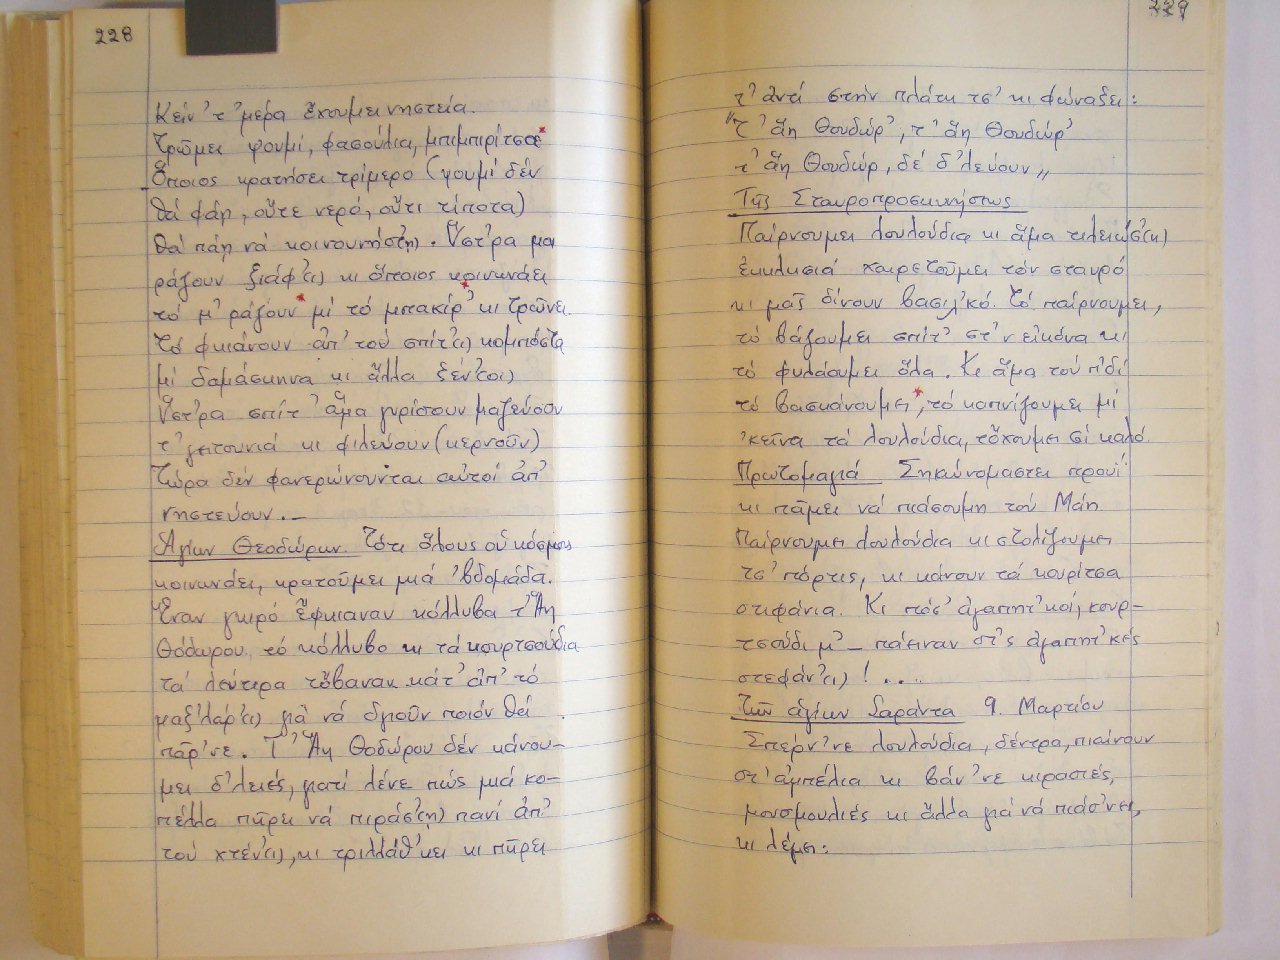 228
Κείν' τ' μέρα ἔχουμει νηστεία.
Τρῶμει ψουμί, φασούλια, μπιμπιρίτσα
Ὅποιος κρατήσει τρίμερο (ψουμί δέν
θά φάη, οὔτε νερό, οὔτι τίποτα)
θά πάη νά κοινουνήσ'(η). Ὕστ'ρα μα
ράζουν ξιάφ'(ι) κι ὅποιος κοινωνάει
τό μ'ράζουν μί τό μπακίρ' κι τρῶνει.
Τό φκιάνουν ἀπ' τού σπίτ'(ι) κομπόστα
μί δαμάσκηνα κι ἄλλα ξέν'(οι)
Ὕστ'ρα σπίτ' ἅμα γυρίσουν μαζεύουν
τ' γειτουνιά κι φιλεύουν (κερνοῦν)
Τώρα δέν φανερώνουνται αὐτοί ἀπ'
νηστεύουν. –
Ἁγίων Θεοδώρων. Τότι ὅλους οὑ κόσμους
κοινωνάει, κρατοῦμει μιά 'βδομάδα.
Ἕναν γκιρό ἔφκιαναν κόλλυβα τ' Ἅη
Θόδωρου, τό κόλλυβο κι τά κουρτσούδια
τά λεύτερα τὄβαναν κάτ' ἀπ' τό
μαξ'λάρ'(ι) γιά νά διοῦν ποιόν θά
πάρ'νε. Τ' Ἅη Θοδώρου δέν κάνου–
μει δ'λειές, γιατί λένε πώς μιά κο–
πέλλα πῆρει νά πιράσ'(η) πανί ἀπ'
τού χτέν'(ι), κι τριλλάθ'κει κι πῆρει
229
τ' ἀντί στήν πλάτη τσ' κι φώναξει:
"Τ' ἅη Θουδώρ', τ' ἅη Θουδώρ'
τ' ἅη Θουδώρ, δέ δ'λεύουν"
Τῆς Σταυροπροσκυνήσεως
Παίρνουμει λουλούδια κι ἅμα τελειώσ'(η)
ἐκκλησιά χαιρετοῦμει τόν σταυρό
κι μᾶς δίνουν βασιλ'κό. Τό παίρνουμει,
τό βάζουμει σπίτ' στ'ν εἰκόνα κι
τό φυλάουμει ὅλα. Κι ἅμα τού π'δί
τό βασκάνουμει, τό καπνίζουμει μί
'κεῖνα τά λουλούδια, τὄχουμει σί καλό.
Πρωτομαγιά Σηκώνομαστει πρωί
κι πᾶμει νά πιάσουμη τόν Μάη
Παίρνουμει λουλούδια κι στολίζουμει
τσ' πόρτις, κι κάνουν τά κουρίτσα
στιφάνια. Κι πόσ' ἀγαπητ'κοί, κουρ–
τσούδι μ' – πάειναν στ'ς ἀγαπητ'κές
στεφάν'(ι)! . . .
Τῶν ἁγίων Σαράντα 9. Μαρτίου
Σπέρν'νε λουλούδια, δέντρα, πιαίνουν
στ' ἀμπέλια κι βάν'νε κιρασιές,
μουσμουλιές κι ἄλλα γιά νά πιάσ'νει,
κι λέμει: